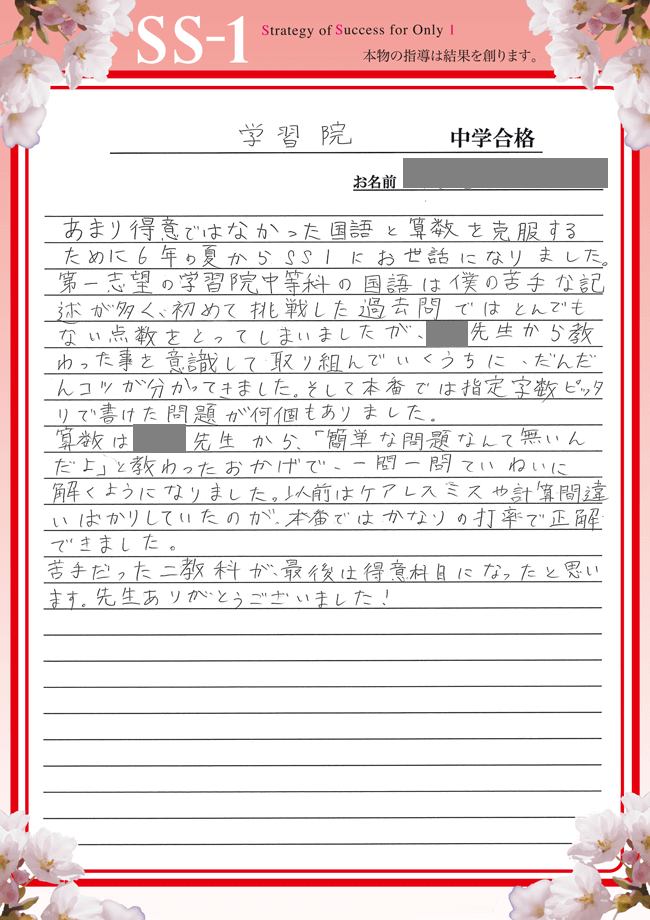 SS-1
Strategy of Success for Only 1
本物の指導は結果を創ります。
学習院 中学合格
お名前
あまり得意ではなかった国語と算数を克服する
ために6年の夏からSS1にお世話になりました。
第一志望の学習院中等科の国語は僕の苦手な記
述が多く、初めて挑戦した過去問ではとんでも
ない点数をとってしまいましたが、先生から教
わった事を意識して取り組んでいくうちに、だんだ
んコツが分かってきました。そして本番では指定字数ピッタ
リで書けた問題が何個もありました。
算数は先生から、「簡単な問題なんて無いん
だよ」と教わったおかげで、一問一問ていねいに
解くようになりました。以前はケアレスミスや計算間違
いばかりしていたのが、本番ではかなりの打率で正解
できました。
苦手だった二教科が、最後は得意科目になったと思い
ます。先生ありがとうございました!